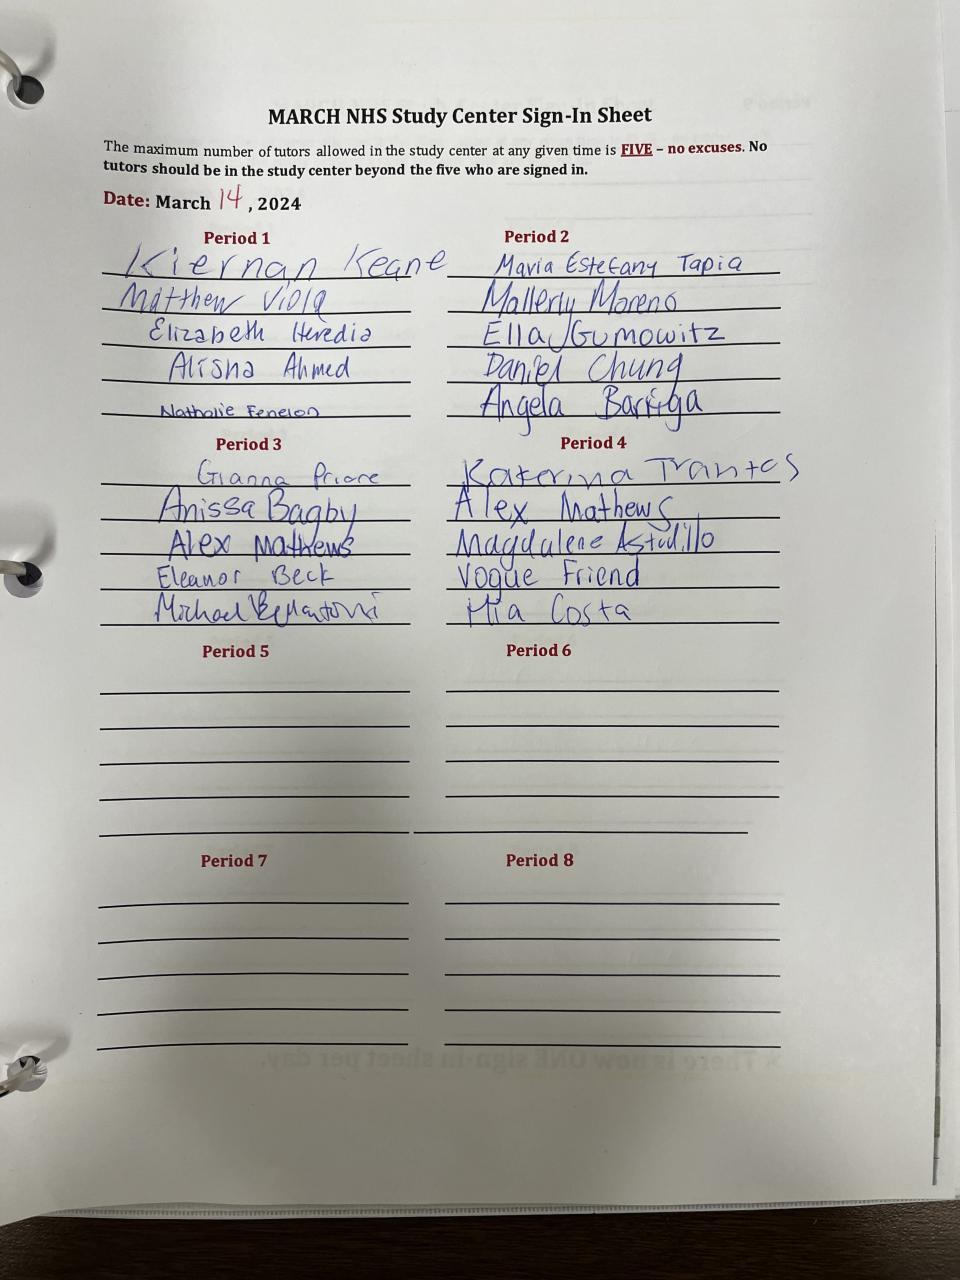 MARCH NHS Study Center Sign-In Sheet
The maximum number of tutors allowed in the study center at any given time is FIVE – no excuses. No
tutors should be in the study center beyond the five who are signed in.
Date: March 14, 2024
Period 1
Kiernan Keane
Matthew Viola
Elizabeth Heredia
Alisha Ahmed
Nathalie Fenelon
Period 2
Maria Estefany Tapia
Mallerly Moreno
Ella Gumowitz
Daniel Chung
Angela Barriga
Period 3
Gianna Priore
Anissa Bagby
Alex Mathews
Eleanor Beck
Michael Bellantoni
Period 4
Katerina Trantos
Alex Mathews
Magdalene Astudillo
Vogue Friend
Mia Costa
Period 5
Period 6
Period 7
Period 8
* There is now ONE sign-in sheet per day.